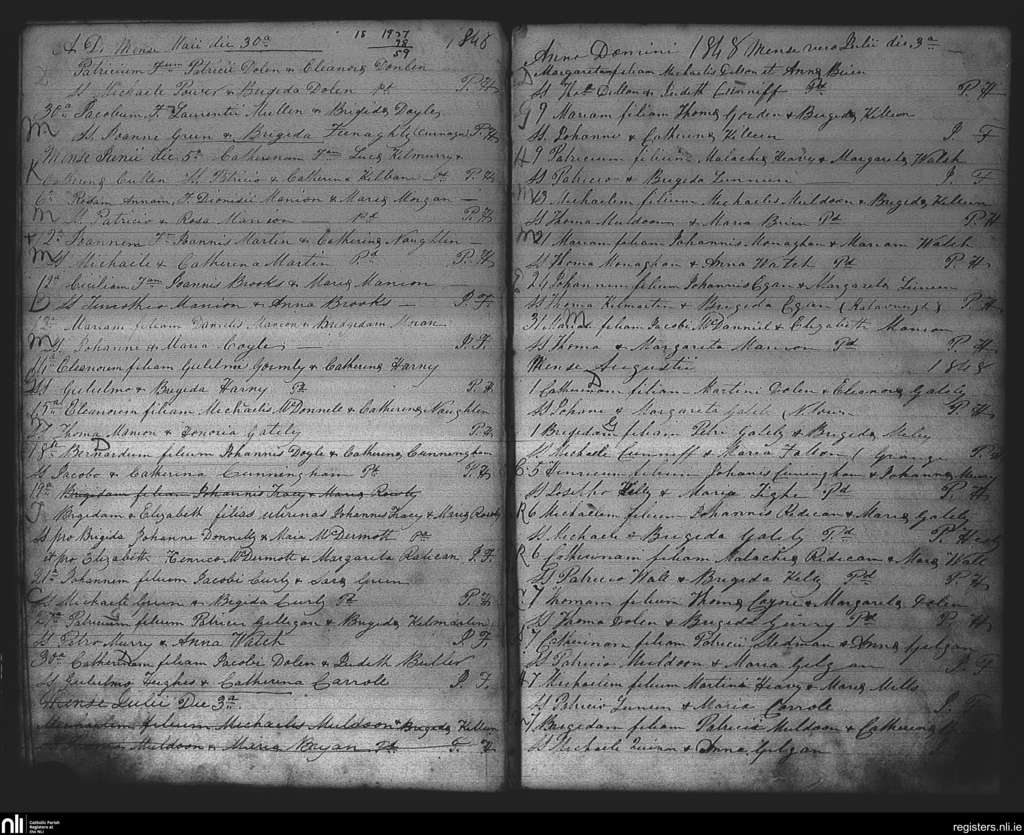 A. D. Mense Maii die 30a 18 1937 1848
78
59
Patricium Fum Patricii Dolen & Eleanora Donlen
Ss Michaele Power & Brigeda Dolen Pd P. H
30a Jacobum F. Laurentii Mullen & Brigida Doyle
M Ss Joanne Green & Brigida Feenaghty P. H
Mense Junii die 5a Catherinam Fam Luca Kilmurry &
K Catherina Cullen Ss Patricio & Catherina Kilbane Pd P. H
6a Rosam Annam F. Dionisii Manion & Maria Morgan
M Ss Patricio & Rosa Manion Pd P. H
12a Joannem Fm Joannis Martin & Catherina Naughten
M Ss Michaele & Catherina Martin Pd P. H
Ceciliam Fam Joannis Brooks & Maria Manion
Ss Timotheo Manion & Anna Brooks P. F.
Mariam filiam Danielis Manion & Bridgedam Moran
M Ss Johanne & Maria Coyle P. F.
Eleanoram filiam Gulielmi Gormly & Catherina Harny
Ss Gulielmo & Brigida Harny Pd P. H
15a Eleanoram filiam Michaelis McDonnele & Catherina Naughten
Ss Thoma Manion & Honoria Gately P. H
18a Bernardum filium Johannis Doyle & Catherina Cunningham
D
Ss Jacobo & Catherina Cunningham Pd P. H
19a Brigedam filiam Johannis Tracy & Maria Rowty
T Brigedam & Elizabeth filias uterinas Johannis Tracy & Maria Rowty
Ss pro Brigida Johanne Donnelly & Maria McDermott Pd
et pro Elizabeth Henrico McDermott & Margarita Ratican P. F.
Johannem filium Jacobi Curly & Sara Green
C Ss Michaele Green & Brigida Curly Pd P. H
27a Patricium filium Patricii Gillegan & Brigida
Ss Petro Murry & Anna Walsh P. F.
30a Catherinam filiam Jacobi Dolen & Judeth Butler
Ss Gulielmo Hughes & Catherina Carrole P. F.
Mense Julii Die 3a
filium Michaelis Muldoon & Brigida Killeen
Muldoon & Maria Bryan Pd P. H
Anno Domini 1848 Mense vero Julii die 3a
D Margaretam filiam Michaelis Dillon et Anna Brien
Ss Thos Dillon & Judeth Cunniff Pd P. H
G 9 Mariam filiam Thoma Gorden & Brigida Killeen
Ss Johanne & Catherina Killeen P. F
H 9 Patricium filium Malachia Heavy & Margarita Walsh
Ss Patricio & Brigida P. F
M 13 Michaelem filium Michaelis Muldoon & Brigida Killeen
Ss Thoma Muldoon & Maria Brien Pd P. H
M 21 Mariam filiam Johannis Monaghan & Mariam Walsh
Ss Thoma Monaghan & Anna Walsh Pd P. H
E 24 Johannem filium Johannis Egan & Margarita
Ss Thoma Kilmartin & Brigida Egan P. H
31 Mariam filiam Jacobi McDanniel & Elizabeth Manion
M
Ss Thoma & Margarita Manion Pd P. H
Mense Augustii 1848
1 Catherinam filiam Martini Dolen & Eleanora Gately
D
Ss Johane & Margareta Gately P. H
1 Brigedam filiam Petri Gately & Brigida
G
Ss Michaele Cunniff & Maria Fallon Pd
C 5 Henricum filium Johanis Cunningham & Johanna
Ss Josepho Kelly & Maria Tighe Pd P. H
R 6 Michaelem filium Johannis Redican & Maria Gately
Ss Michaele & Brigida Gately Pd
R 6 Catherinam filiam Malachia Redican & Maria Wall
Ss Patricio Wall & Brigida Kelly Pd P. H
C 7 Thomam filium Thoma Coyne & Margarita Dolen
Ss Thoma Dolen & Brigida Pd P. H
7 Catherinam filiam Patricii & Anna
Ss Patricio Muldoon & Maria P. F
H 7 Michaelem filium Martini Heavy & Maria Mills
Ss Patricio & Maria Carrole P. F
7 Brigedam filiam Patricii Muldoon & Catherina
Ss Michaele & Anna
nli Catholic Parish
Registers at
the NLI
registers.nli.ie